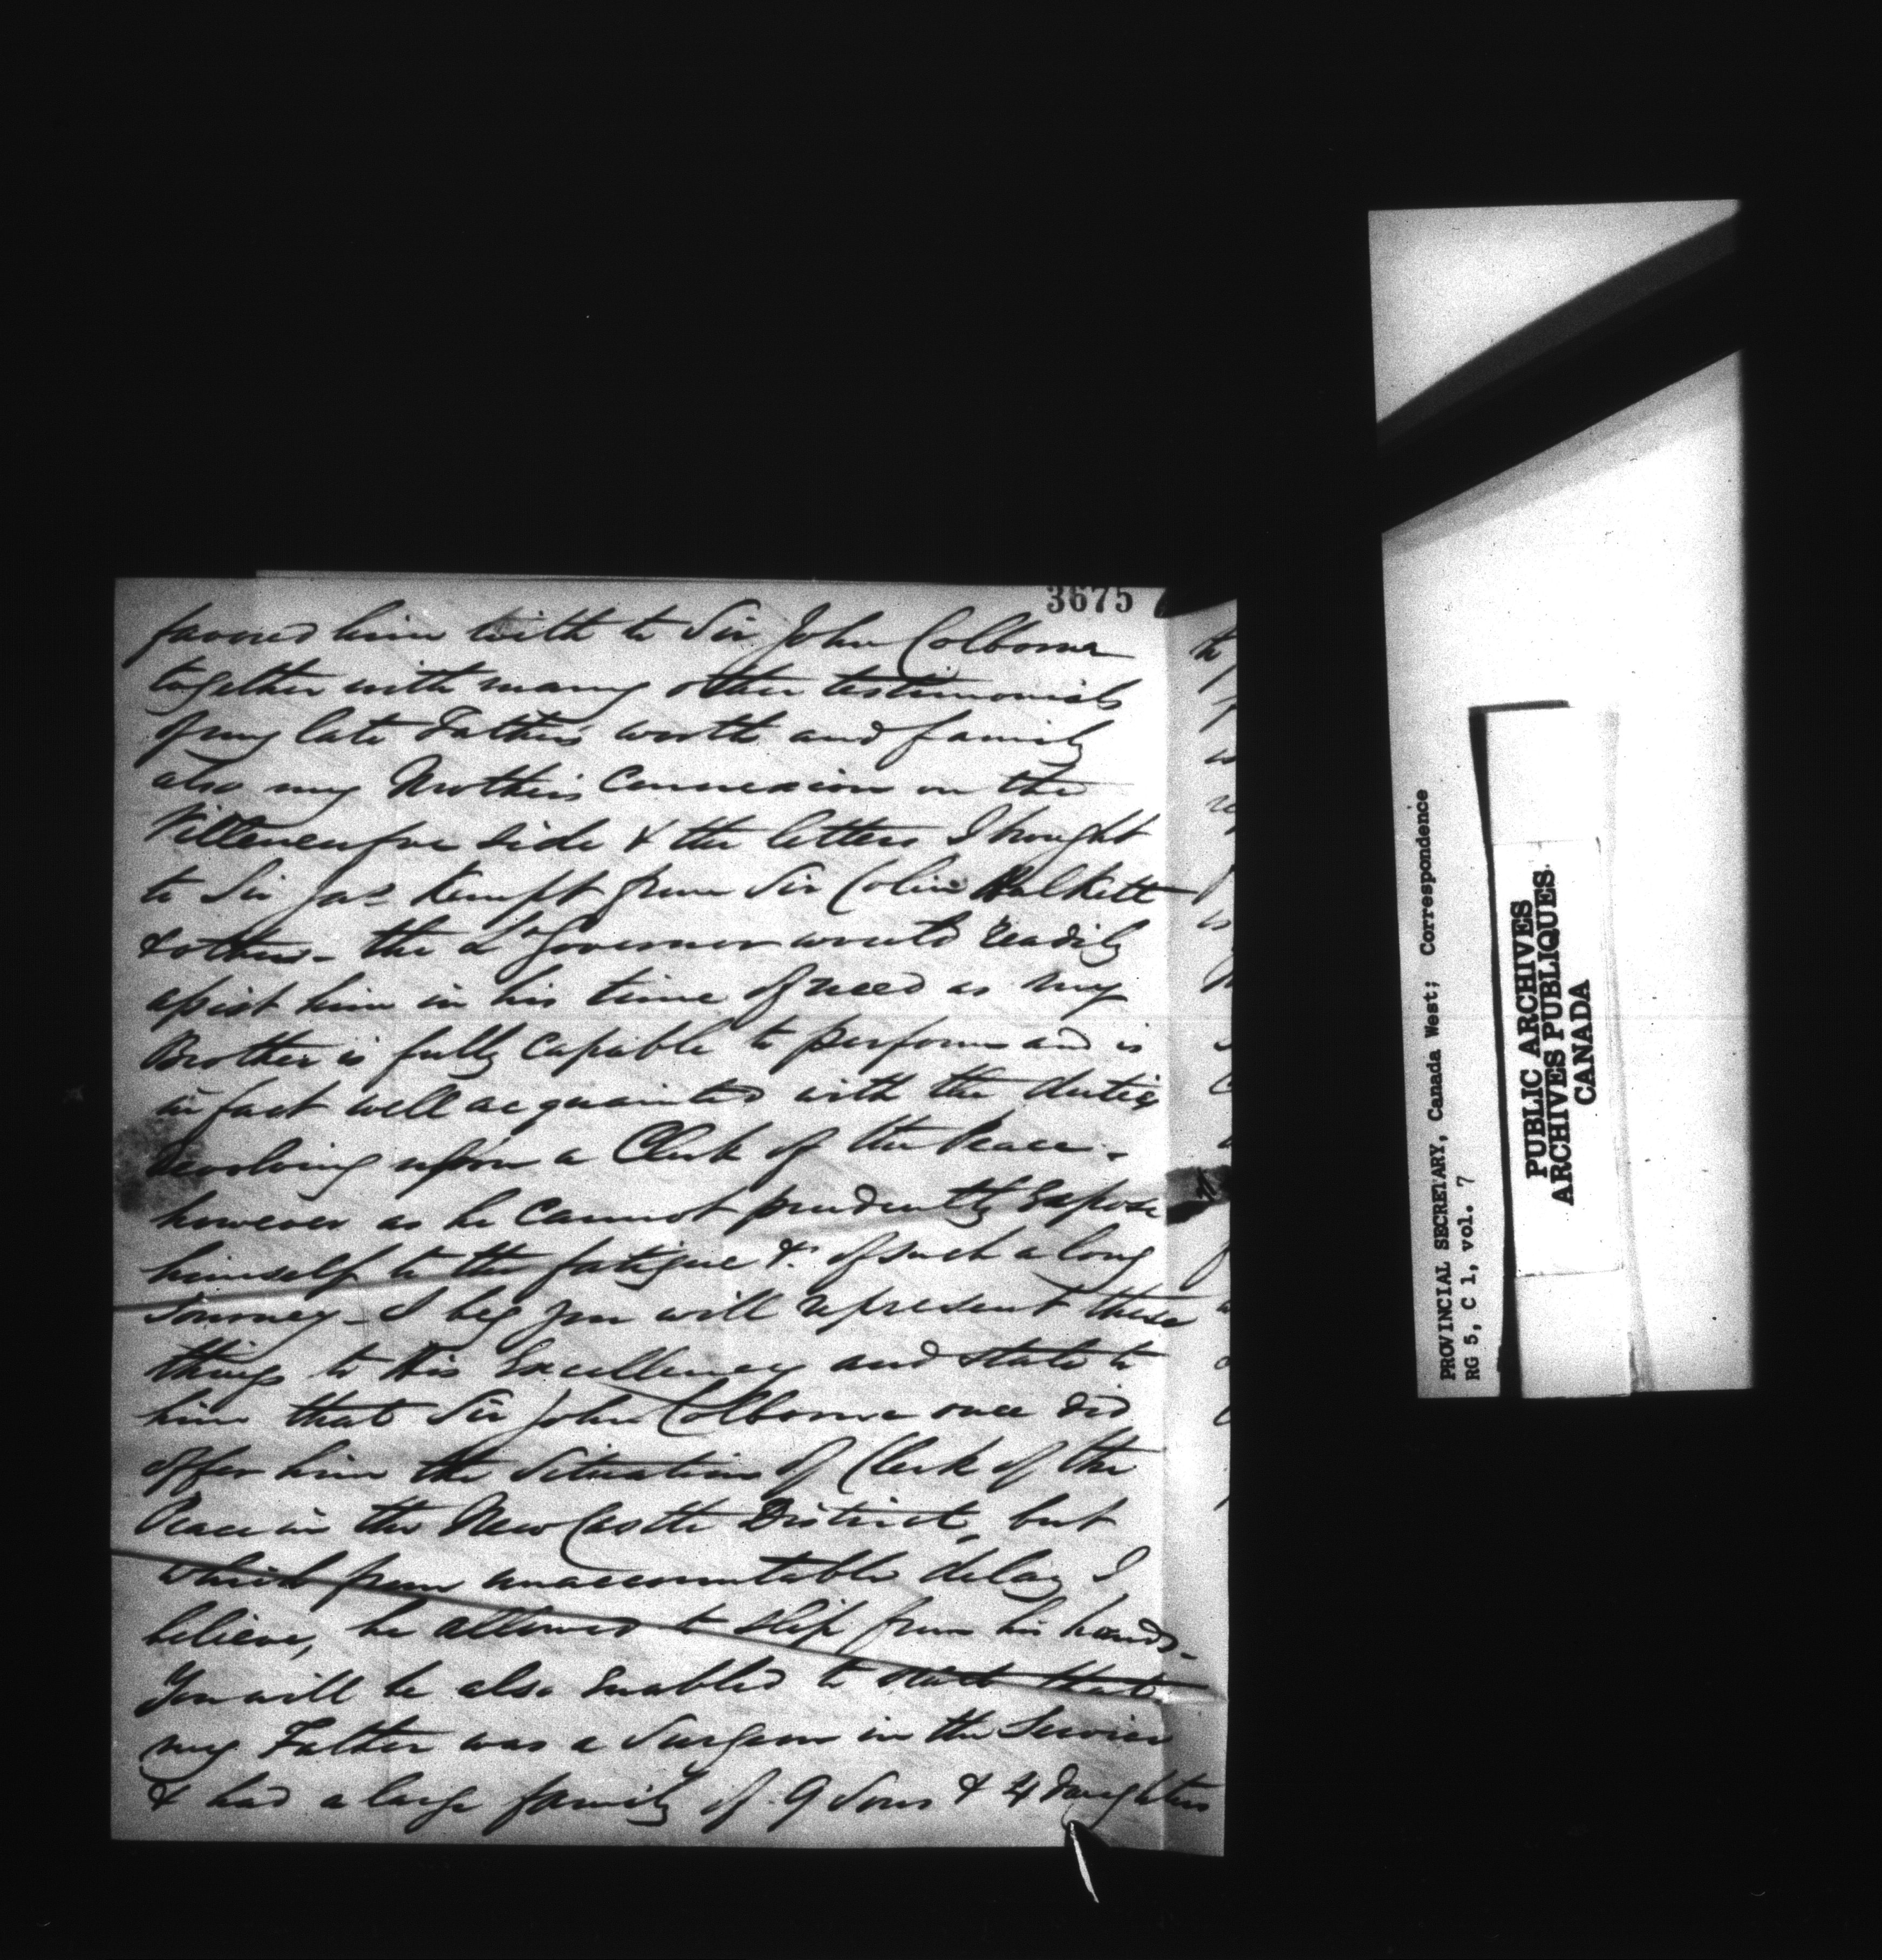 3675
favored him with to Sir John Colborne
together with many other testimonials
of my late Father's worth and family
also my Mother's Connexion on the
Villeneufve side & the letters I brought
to Sir Jas Kempt from Sir Colin Halkett
& others - the Lt Governor would readily
assist him in his time of need as my
Brother is fully capable to perform and is
in fact well acquainted with the duties
devolving upon a Clerk of the Peace.
however as he cannot prudently expose
himself to the fatigue &c of such a long
Journey - I beg you will represent these
things to His Excellency and state to
him that Sir John Colborne once did
offer him the Situation of Clerk of the
Peace in the New Castle District, but
which from unaccountable delay I
believe, he allowed to slip from his hands -
You will be also Enabled to state that
my Father was a Surgeon in the Service
& had a large family of 9 Sons & 4 daughters
PROVINCIAL SECRETARY, Canada West; Correspondence
RG 5, C 1, vol. 7
PUBLIC ARCHIVES
ARCHIVES PUBLIQUES
CANADA